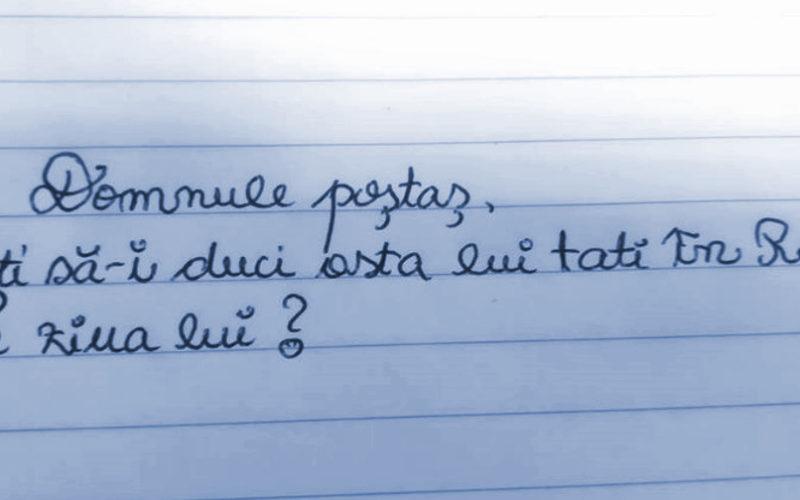 Domnule poștaș,
ti să-i duci asta lui tati în R
ziua lui?